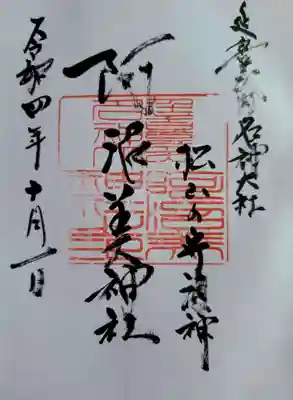 延喜式内名神大社
松山の守護神
阿沼美神社
令和四年十月一日